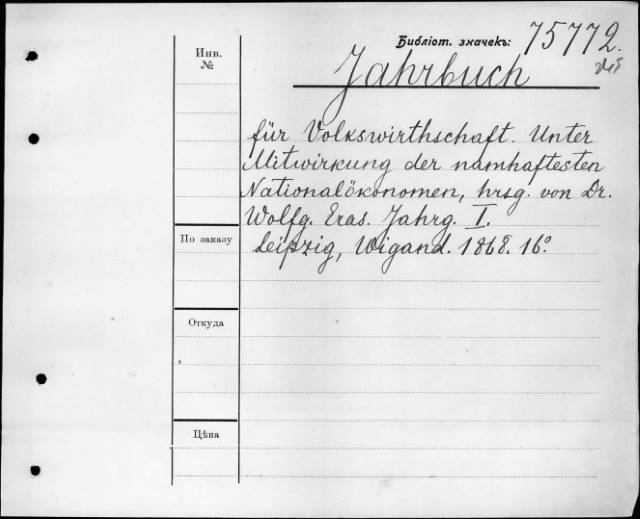 Библіот. значекъ: 75772.
Инв.
№
Jahrbuch
für Volkswirthschaft. Unter
Mitwirkung der namhaftesten
Nationalökonomen, hrsg. von Dr.
Wolfg. Eras. Jahrg. I.
Leipzig, Wigand. 1868. 16°.
По заказу
Откуда
Цѣна